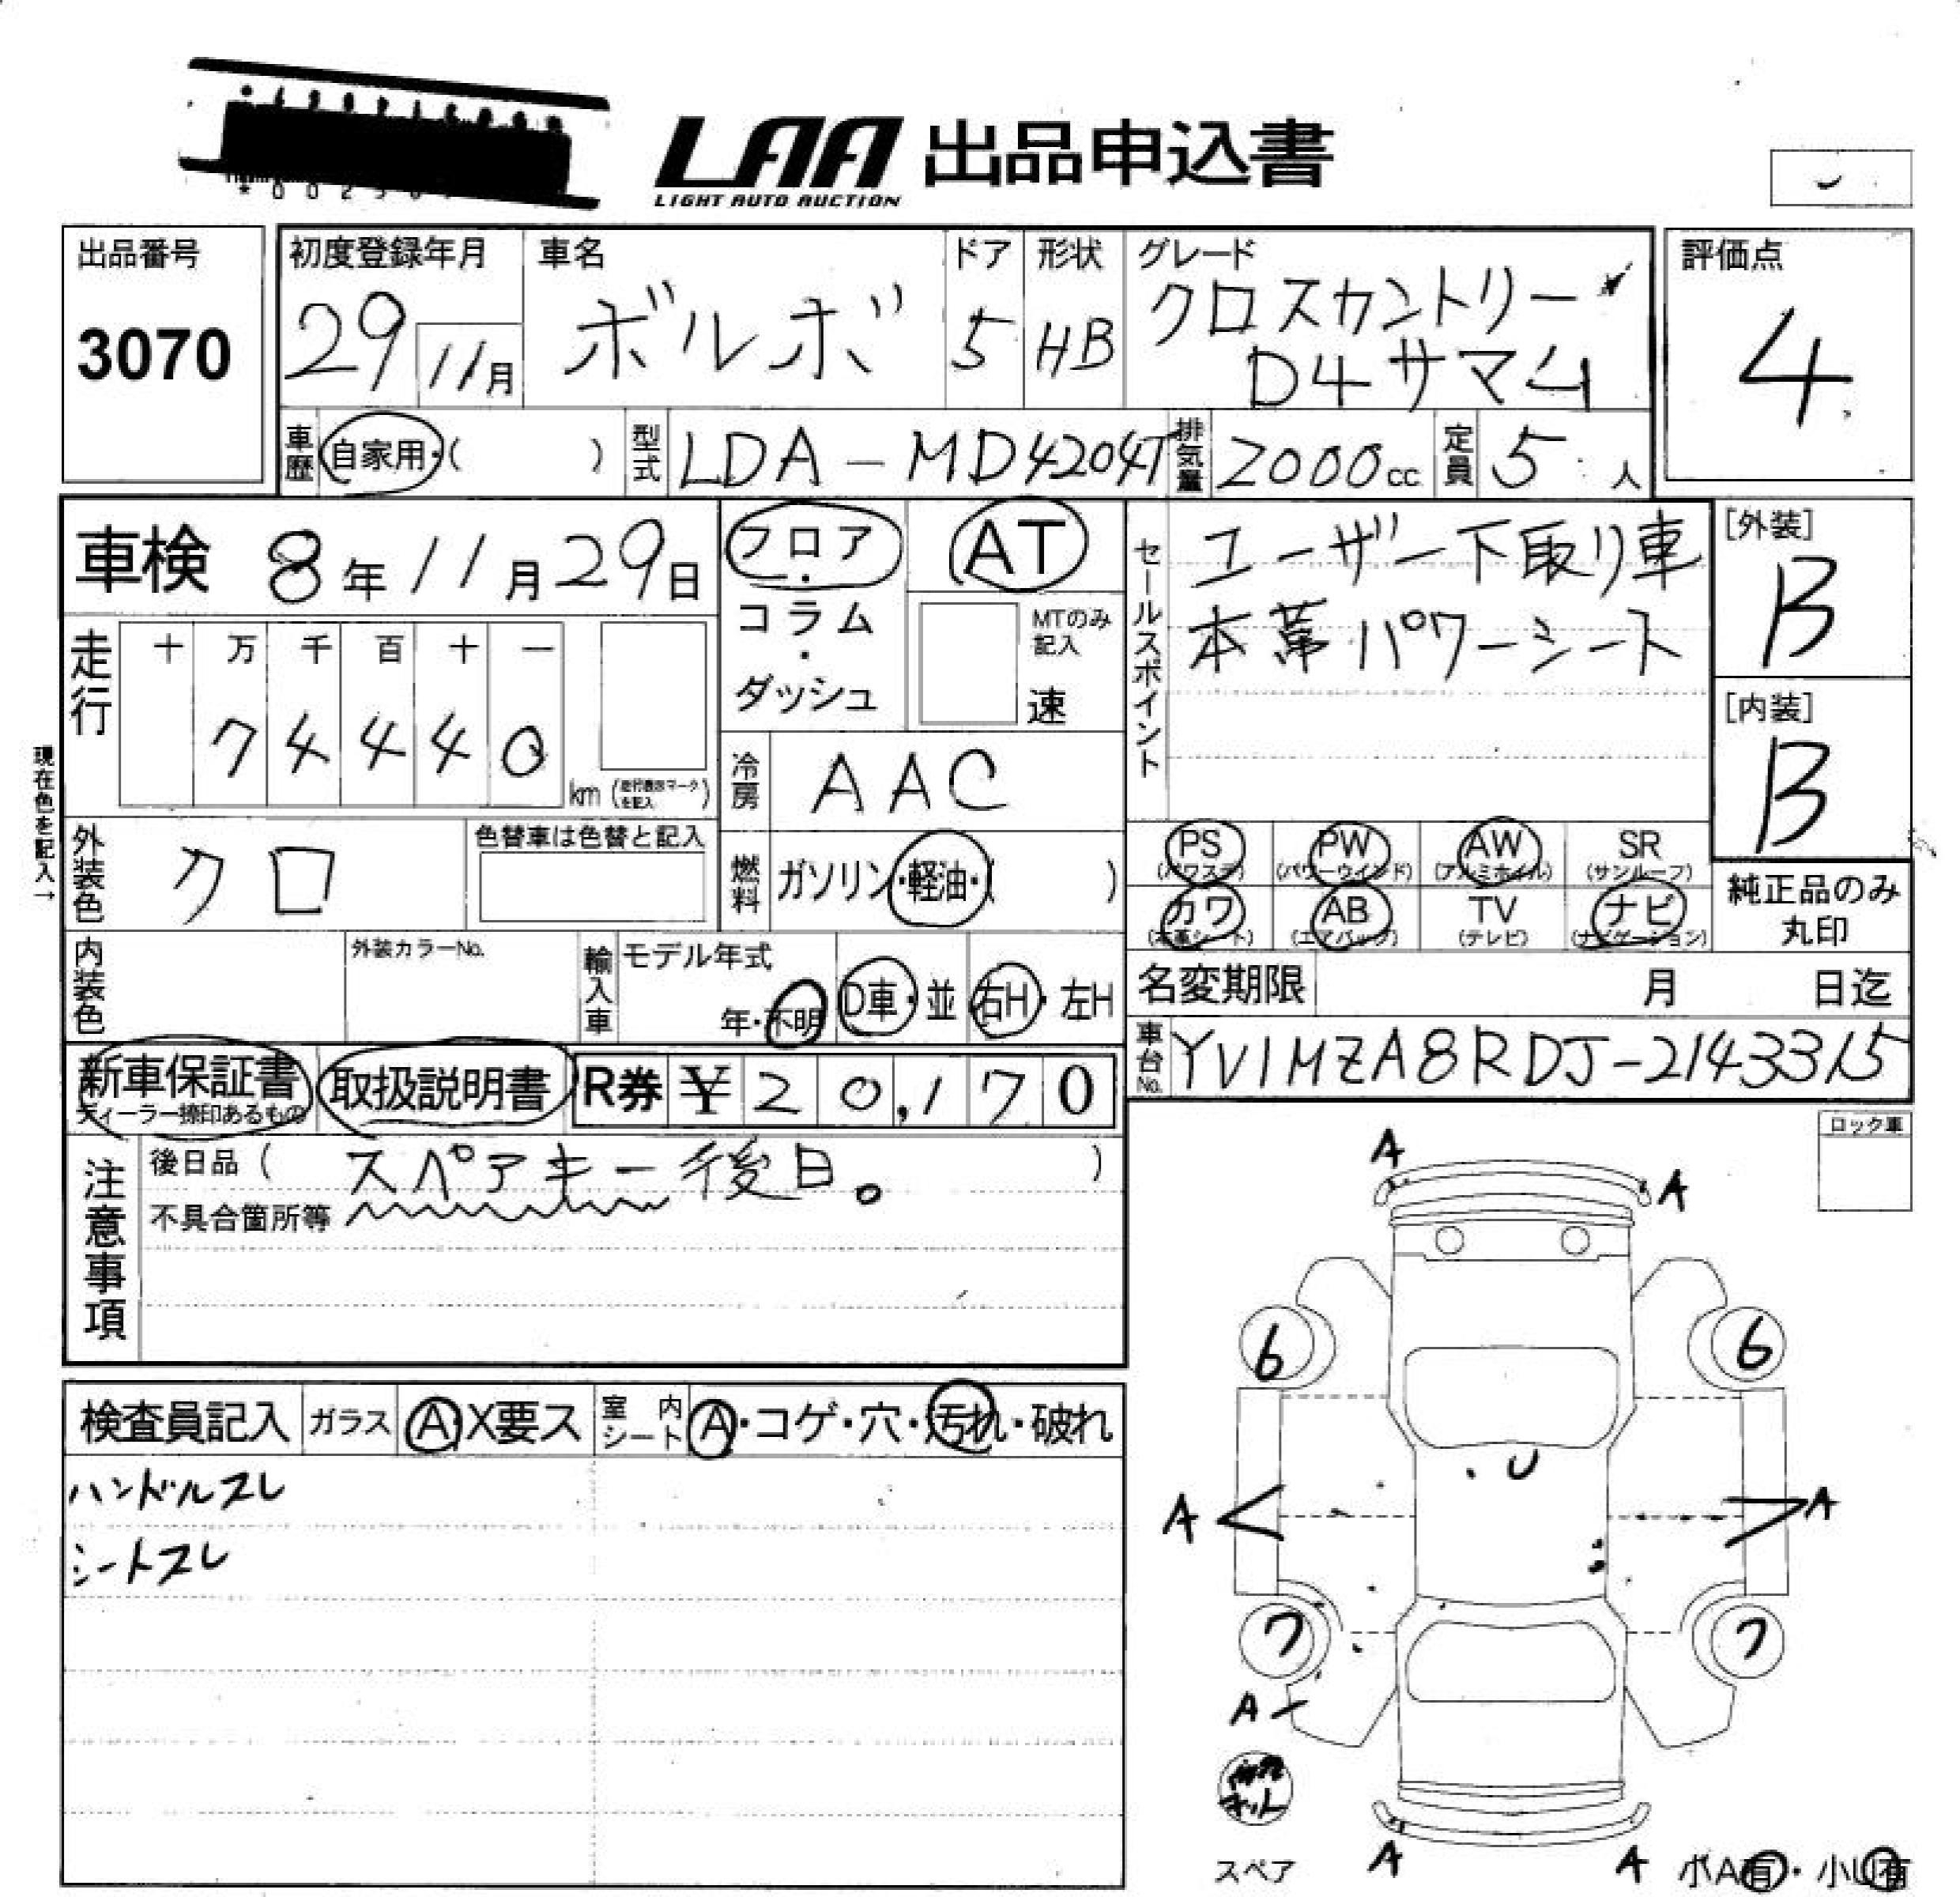 LAA 出品申込書
LIGHT AUTO AUCTION
出品番号
3070
初度登録年月
29
11月
車名
ボルボ
ドア
5
形状
HB
グレード
クロスカントリー
D4サマム
評価点
4
車歴
自家用・( )
型式
LDA-MD4204T
排気量
2000cc
定員
5人
車検 8年11月29日
走行
十 万 千 百 十 一
7 4 4 4 0
km (走行表示マークを記入)
現在色を記入→
外装色
クロ
色替車は色替と記入
フロア
・
コラム
・
ダッシュ
AT
MTのみ
記入
速
冷房
AAC
燃料
ガソリン・軽油・( )
セールスポイント
ユーザー下取り車
本革パワーシート
[外装]
B
[内装]
B
PS
(パワステ)
PW
(パワーウインド)
AW
(アルミホイル)
SR
(サンルーフ)
カワ
(本革シート)
AB
(エアバック)
TV
(テレビ)
ナビ
(ナビゲーション)
純正品のみ
丸印
内装色
外装カラーNo.
輸入車
モデル年式
年・不明
D車・並
右H・左H
名変期限 月 日迄
車台No.
YV1MZA8RDJ-2143315
新車保証書
ディーラー捺印あるもの
取扱説明書
R券 ¥20,170
注意事項
後日品( スペアキー後日。 )
不具合箇所等
ロック車
検査員記入
ガラス
A・X要ス
室内
シート
A・コゲ・穴・汚れ・破れ
ハンドルスレ
シートスレ
A
A
6
6
U
A
A
7
7
A
修理
キット
スペア
A
A
ボA有・小U有